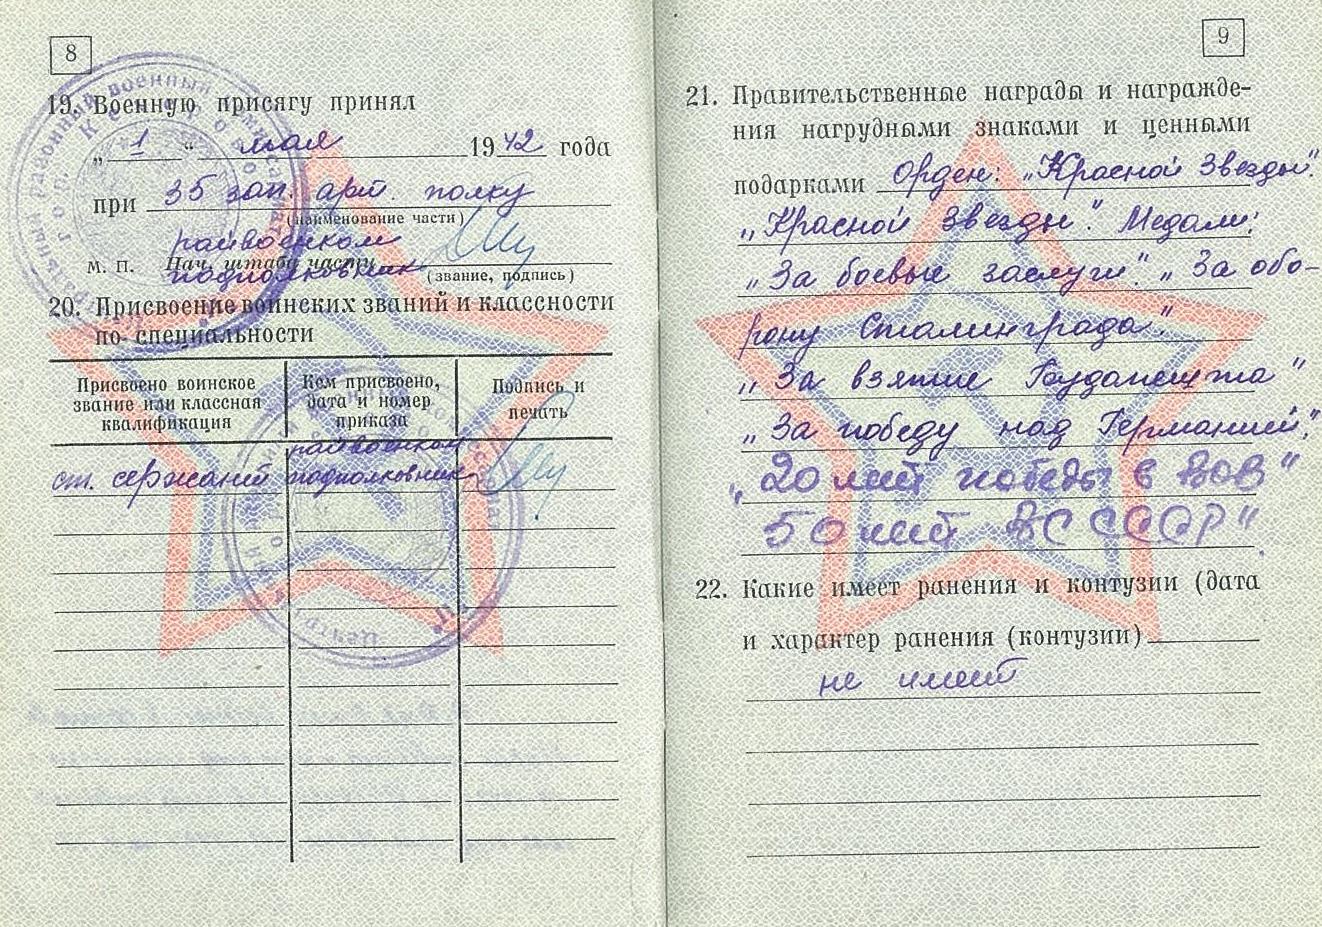 8
19. Военную присягу принял
„ 1 “ мая 1942 года
при 35 зап. арт. полку
(наименование части)
райвоенком
М. П. Нач. штаба части
подполковник (звание, подпись)
20. Присвоение воинских званий и классности
по специальности
Присвоено воинское звание или классная квалификация
Кем присвоено, дата и номер приказа
Подпись и печать
ст. сержант
райвоенком
подполковник
9
21. Правительственные награды и награжде-
ния нагрудными знаками и ценными
подарками Орден: „Красной Звезды".
„Красной Звезды". Медали:
„За боевые заслуги". „За обо-
рону Сталинграда".
„За взятие Будапешта"
„За победу над Германией".
„20 лет победы в ВОВ"
50 лет ВС СССР"
22. Какие имеет ранения и контузии (дата
и характер ранения (контузии)
не имеет